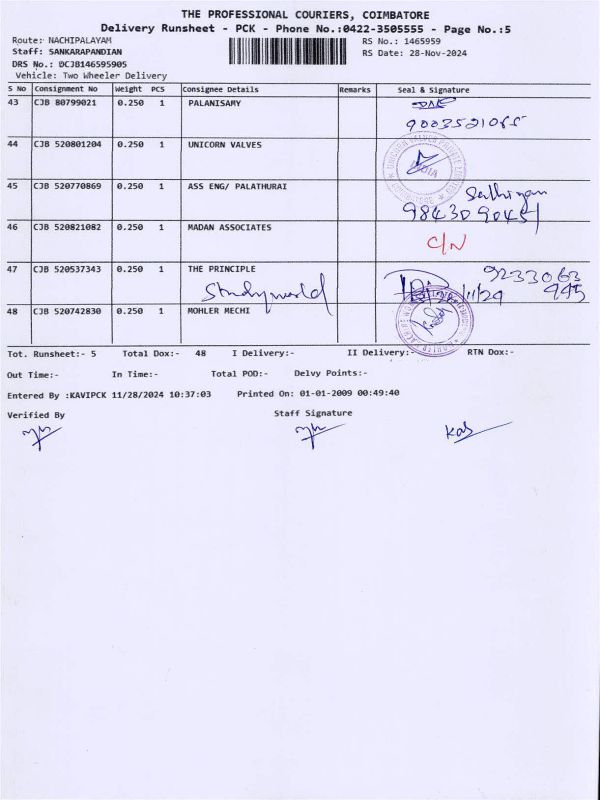 THE PROFESSIONAL COURIERS, COIMBATORE
Delivery Runsheet - PCK - Phone No.:0422-3505555 - Page No.:5
Route: NACHIPALAYAM RS No.: 1465959
Staff: SANKARAPANDIAN RS Date: 28-Nov-2024
DRS No.: DCJB146595905
Vehicle: Two Wheeler Delivery
S No Consignment No Weight PCS Consignee Details Remarks Seal & Signature
43 CJB 80799021 0.250 1 PALANISAMY
44 CJB 520801204 0.250 1 UNICORN VALVES
45 CJB 520770869 0.250 1 ASS ENG/ PALATHURAI Sathiyan
46 CJB 520821082 0.250 1 MADAN ASSOCIATES C/N
47 CJB 520537343 0.250 1 THE PRINCIPLE 9233063
Studyworld 945
48 CJB 520742830 0.250 1 MOHLER MECHI
Tot. Runsheet:- 5 Total Dox:- 48 I Delivery:- II Delivery:- RTN Dox:-
Out Time:- In Time:- Total POD:- Delvy Points:-
Entered By :KAVIPCK 11/28/2024 10:37:03 Printed On: 01-01-2009 00:49:40
Verified By Staff Signature